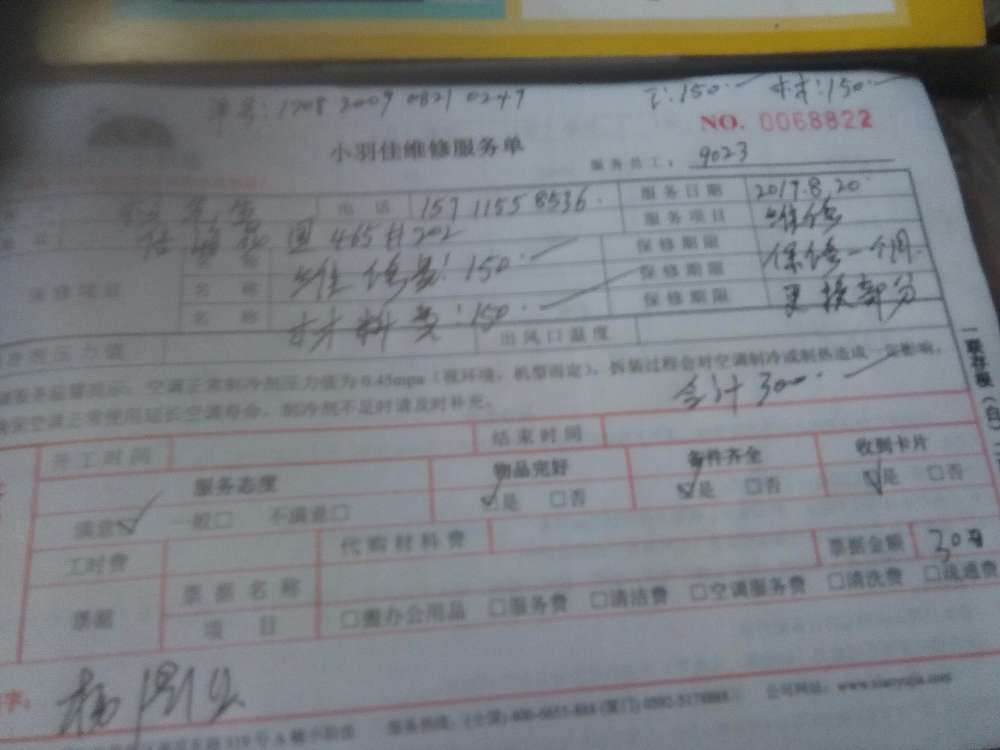 单号:1708 2009 0821 0247
工:150. 材:150.
NO. 0068822
小羽佳维修服务单
服务员工: 9023
先生 电话 15711558536. 服务日期 2017.8.20.
园 465 202 服务项目 维修
保修项目 名称 维修费:150. 保修期限 保修一个月.
名称 保修期限 更换部分
名称 材料费:150. 保修期限
压力值 出风口温度
空调正常制冷剂压力值为0.45mpa(视环境、机型而定), 拆装过程会对空调制冷或制热造成一定影响,
空调正常使用延长空调寿命, 制冷剂不足时请及时补充。
合计300.
一联存根(白)
开工时间 结束时间
服务态度 物品完好 备件齐全 收到卡片
满意☑ 一般□ 不满意□ ☑是 □否 ☑是 □否 ☑是 □否
工时费 代购材料费 票据金额 300
票据 票据名称
项目 □搬办公用品 □服务费 □清洁费 □空调服务费 □清洗费 □疏通费
字: 杨
319号A幢小羽佳 服务热线: 公司网站: www.xiaoyujia.com